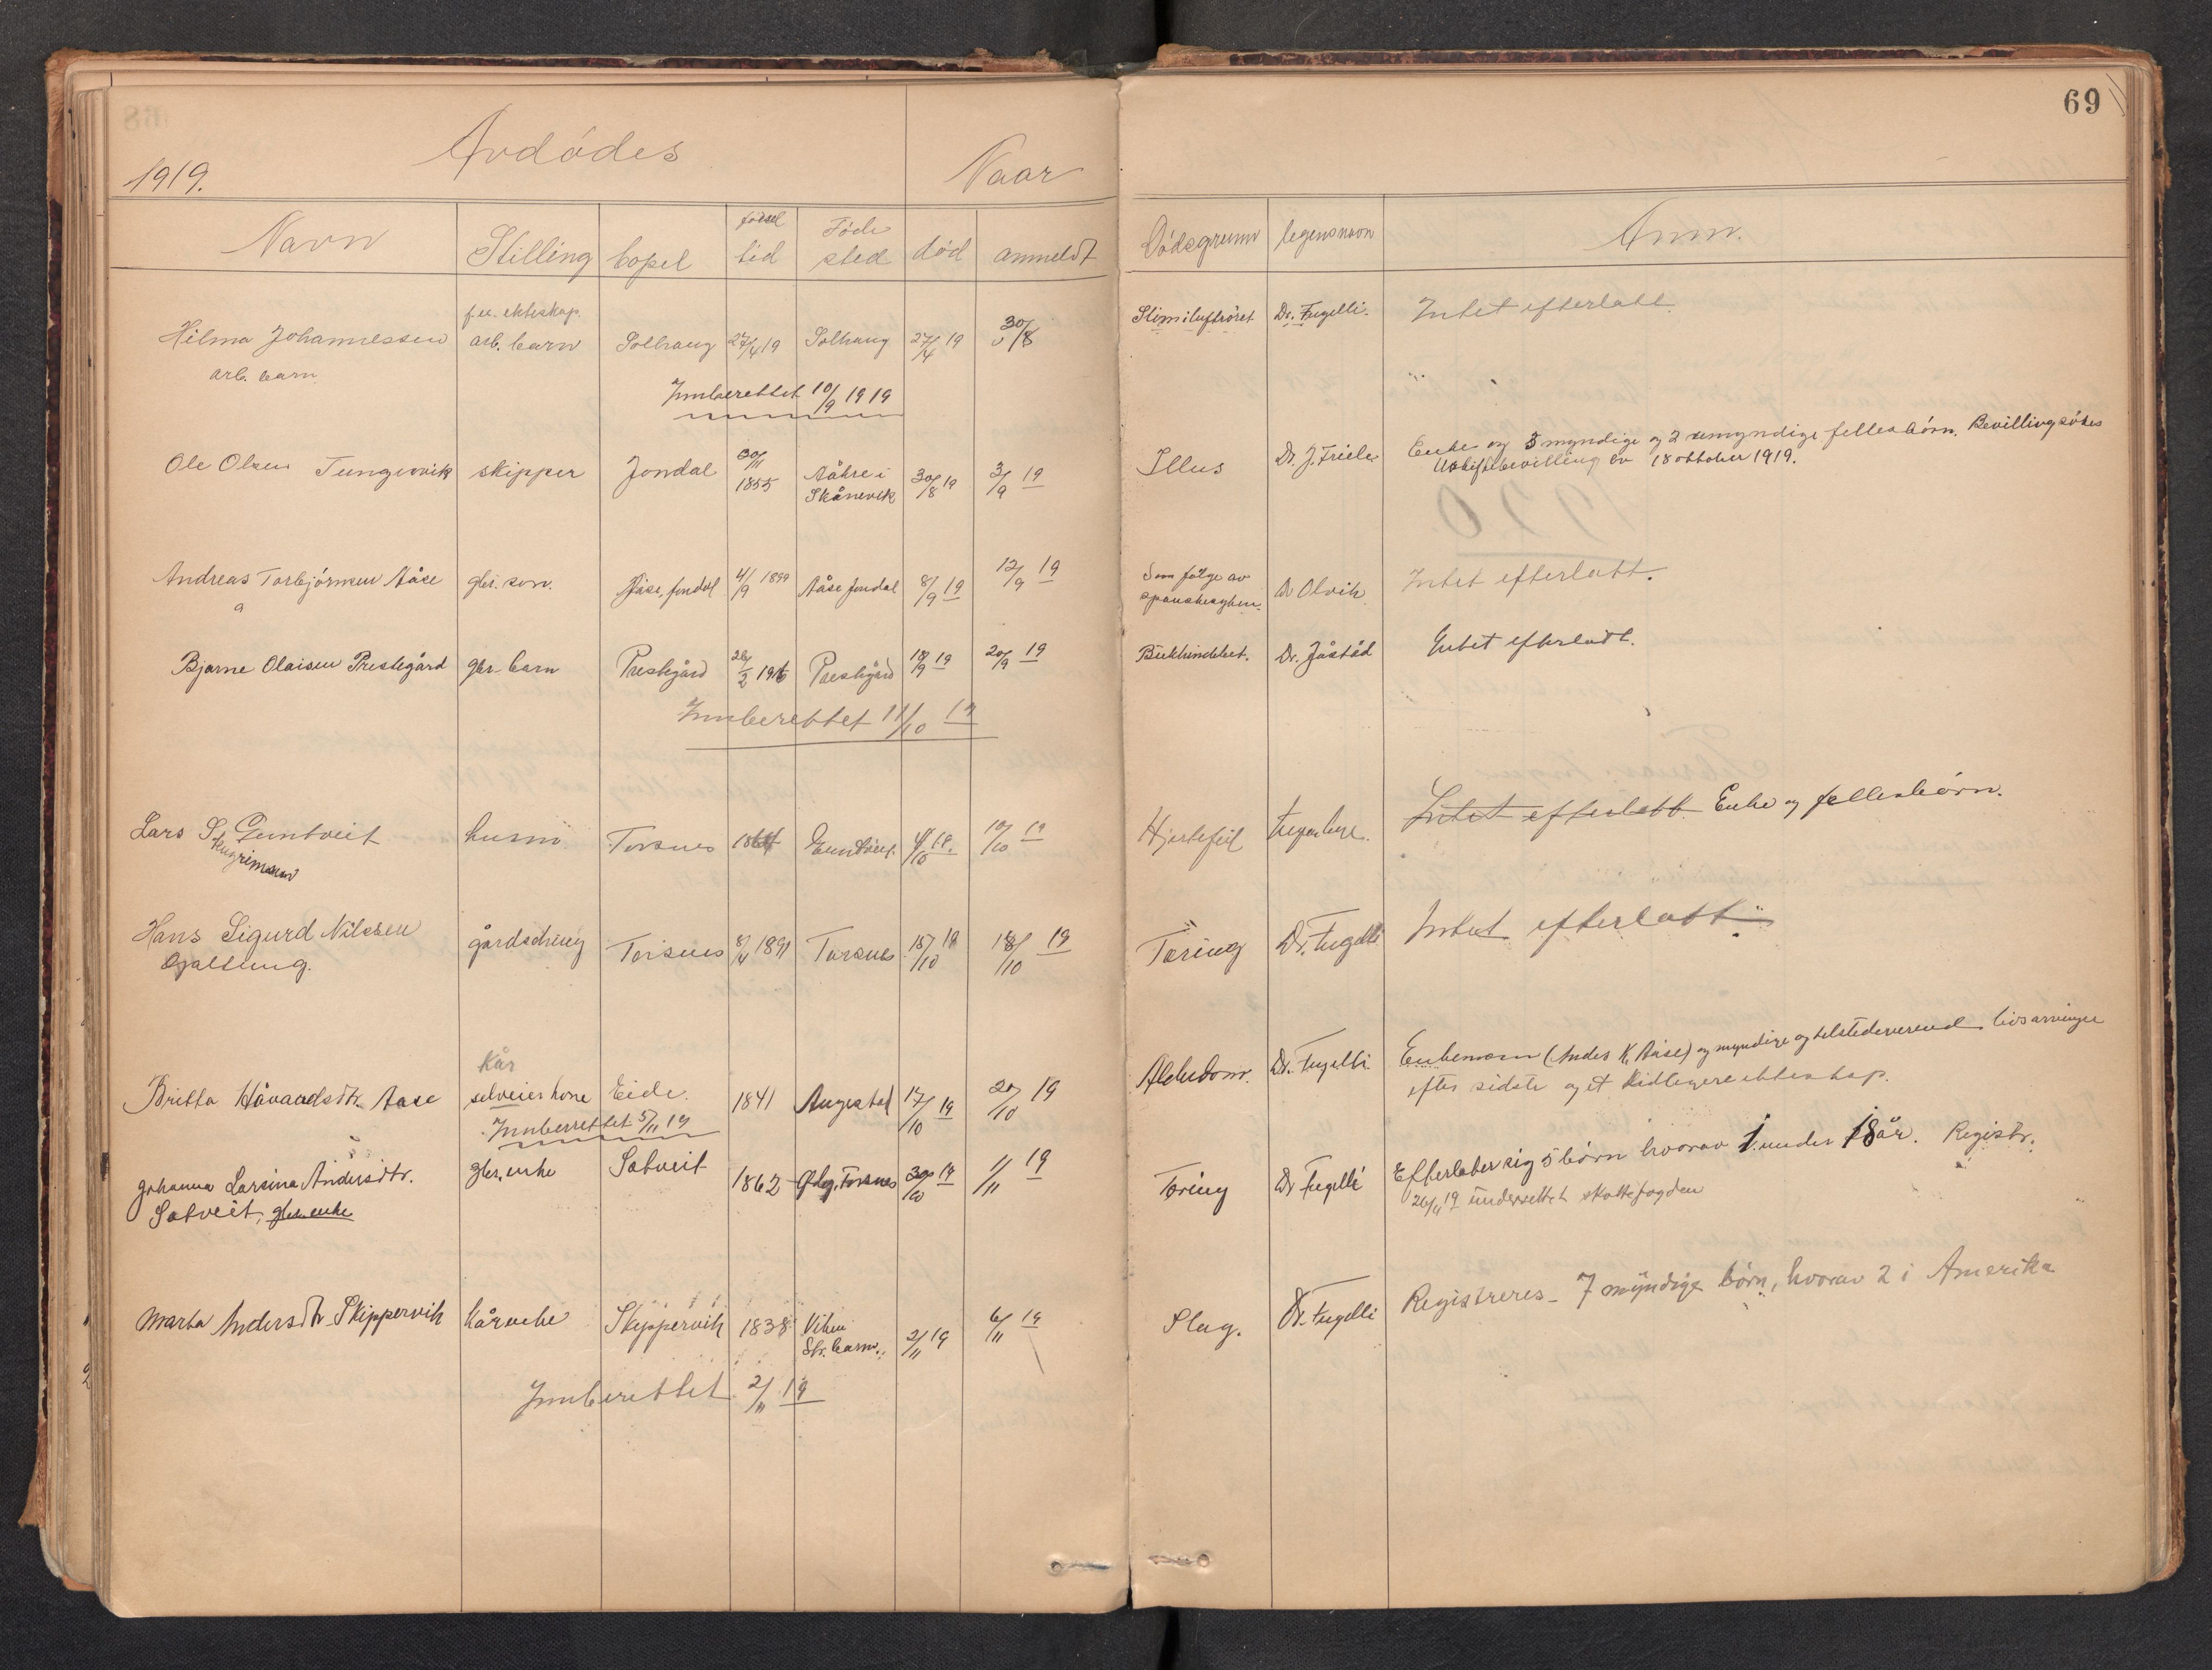 69
1919. Avdödes Naar
Navn Stilling bopel födsel tid Föde sted död anmeldt Dödsgrunn legens navn Anm.
f. u. ekteskap.
Hilma Johannessen arb. barn Solhaug 27/4 19 Solhaug 27/4 19 30/8 Slim i luftröret Dr. Fugelli. Intet efterlatt.
arb. barn
Innberettet 10/9 1919
Ole Olsen Tungesvik skipper Jondal 30/11 1855 Aakre i Skånevik 30/8 19 3/9 19 Illus Dr. J. Friele Enke og 3 myndige og 2 umyndige fellesbörn. Bevilling sökes
Uskiftebevilling av 18 oktober 1919.
Andreas Torbjörnsen Aase gbr. son. Aase, Jondal 4/9 1899 Aase Jondal 8/9 19 12/9 19 Som fölge av spanskesyken. Dr Olvik Intet efterlatt.
Bjarne Olaisen Prestegård gbr. barn Prestegård 26/2 1916 Prestegård 18/9 19 20/9 19 Bukhindebet. Dr. Jåstad Intet efterladt.
Innberettet 11/10 19
Lars S. Guntveit husm Torsnes 1864 Guntveit 4/10 19. 10/10 19 Hjertefeil Intet efterlatt. Enke og fellesbörn.
Hans Sigurd Nilssen gårdsdreng Torsnes 8/4 1891 Torsnes 15/10 19 18/10 19 Tæring Dr. Fugelli Intet efterlatt.
Gjallung.
Kår
Britta Håvardsdtr. Aase selveierkone Eide. 1841 Augestad 17/10 19 20/10 19 Alderdom. Dr. Fugelli Enkemann (Anders K. Aase) og myndige og tilstedeverend. livsarvinger
efter sidste og et tidligere ekteskap.
Innberrettet 5/11 19
Johanna Larsina Andersdtr. gbr. enke Solveit 1862 Torsnes 30/10 19 1/11 19 Tæring Dr Fugelli Efterlater sig 5 börn hvorav 1 under 18 år. Registr.
Solveit, gbr. enke
26/11 19 underrettet skattefogden
Marta Andersdtr Skippervik kårenke Skippervik 1838 Viken Str.barm. 2/11 19 6/11 19 Slag. Dr. Fugelli Registreres - 7 myndige börn, hvorav 2 i Amerika
Innberettet 2/11 19